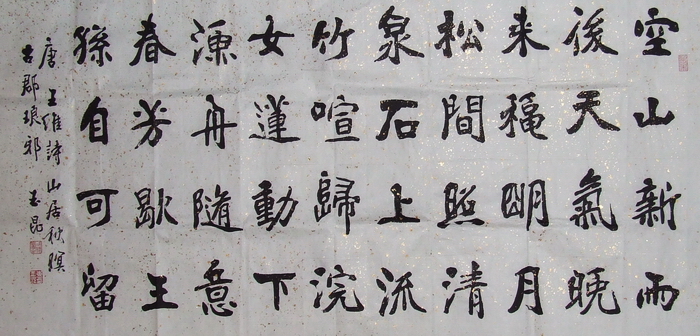 空山新雨
後天氣晚
来穐明月
松間照清
泉石上流
竹喧歸浣
女蓮動下
渔舟隨意
春芳歇王
孫自可留
唐 王维詩 山居秋暝
古郡琅邪